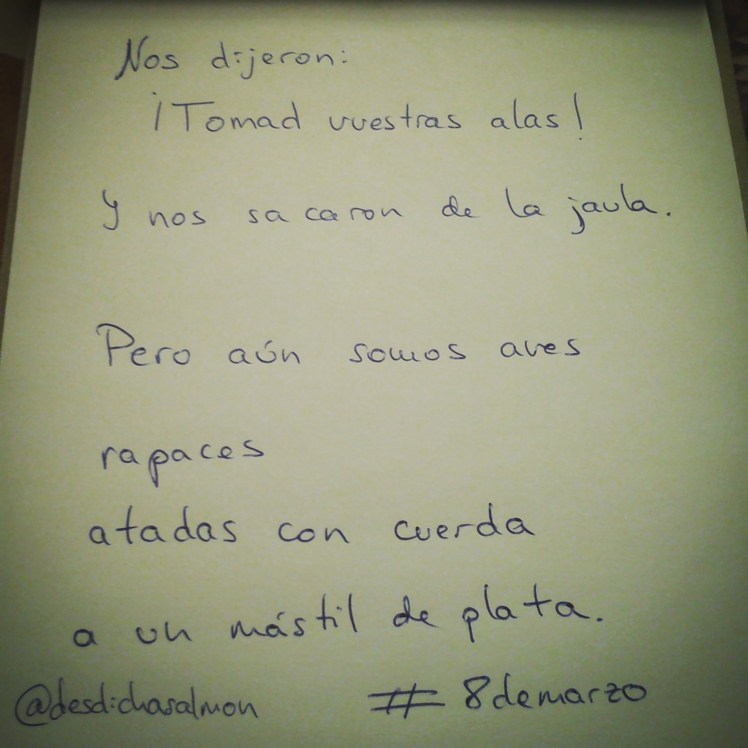 Nos dijeron:
¡Tomad vuestras alas!
Y nos sacaron de la jaula.
Pero aún somos aves
rapaces
atadas con cuerda
a un mástil de plata.
@desdichasalmon # 8demarzo